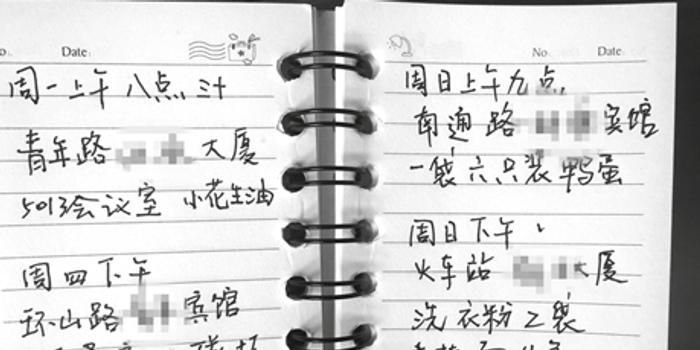 Date:
周一上午八点三十
青年路 大厦
5013会议室 小花生油
周四下午
环山路 宾馆
No. Date:
周日上午九点
南通路 宾馆
一袋六只装鸭蛋
周日下午、
火车站 大厦
洗衣粉2袋